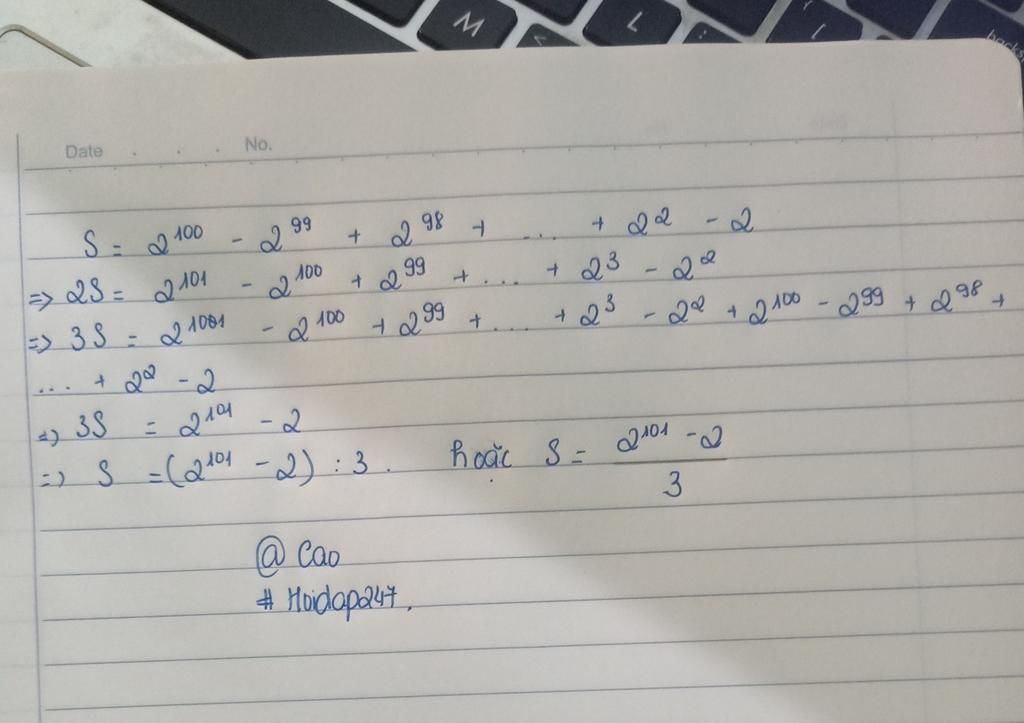 M L
Date . . . No.
S = 2^100 - 2^99 + 2^98 + ... + 2^2 - 2
=> 2S = 2^101 - 2^100 + 2^99 + ... + 2^3 - 2^2
=> 3S = 2^101 - 2^100 + 2^99 + ... + 2^3 - 2^2 + 2^100 - 2^99 + 2^98 +
... + 2^2 - 2
=> 3S = 2^101 - 2
=> S = (2^101 - 2) : 3. hoặc S = (2^101 - 2)/3
@ Cao
# Hoidap247.